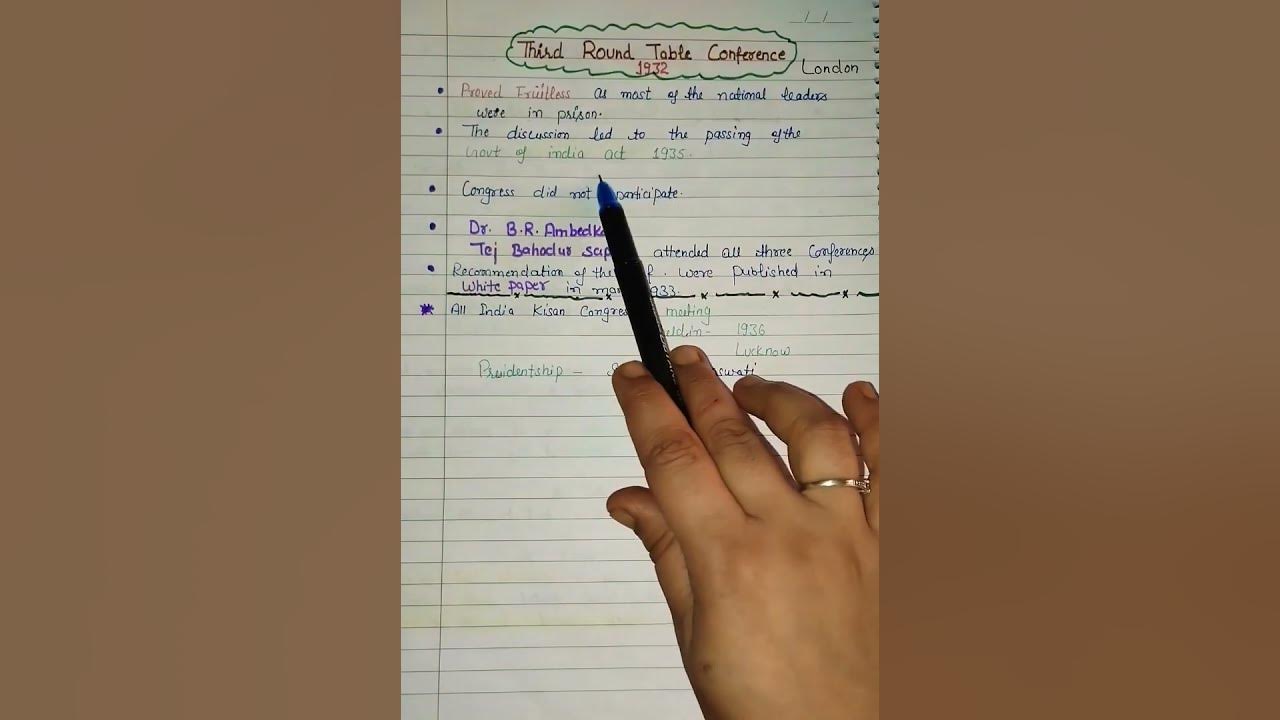 Third Round Table Conference
1932
London
Proved Fruitless as most of the national leaders
were in prison.
The discussion led to the passing of the
Govt of india act 1935.
Congress did not participate.
Dr. B.R. Ambedk
Tej Bahadur sap attended all three Conferences
Recommendation of the were published in
white paper in 1933.
All India Kisan Congres meeting
1936
Lucknow
Presidentship -